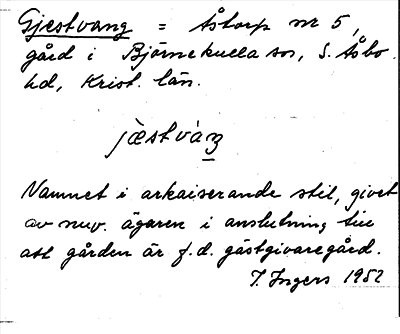 Gjestvang = Åstorp nr 5,
gård i Björnekulla sn, S. Åsbo
hd, Krist. län.
jæstváŋ
Namnet i arkaiserande stil, givet
av nuv. ägaren i anslutning till
att gården är f.d. gästgivaregård.
I. Ingers 1952